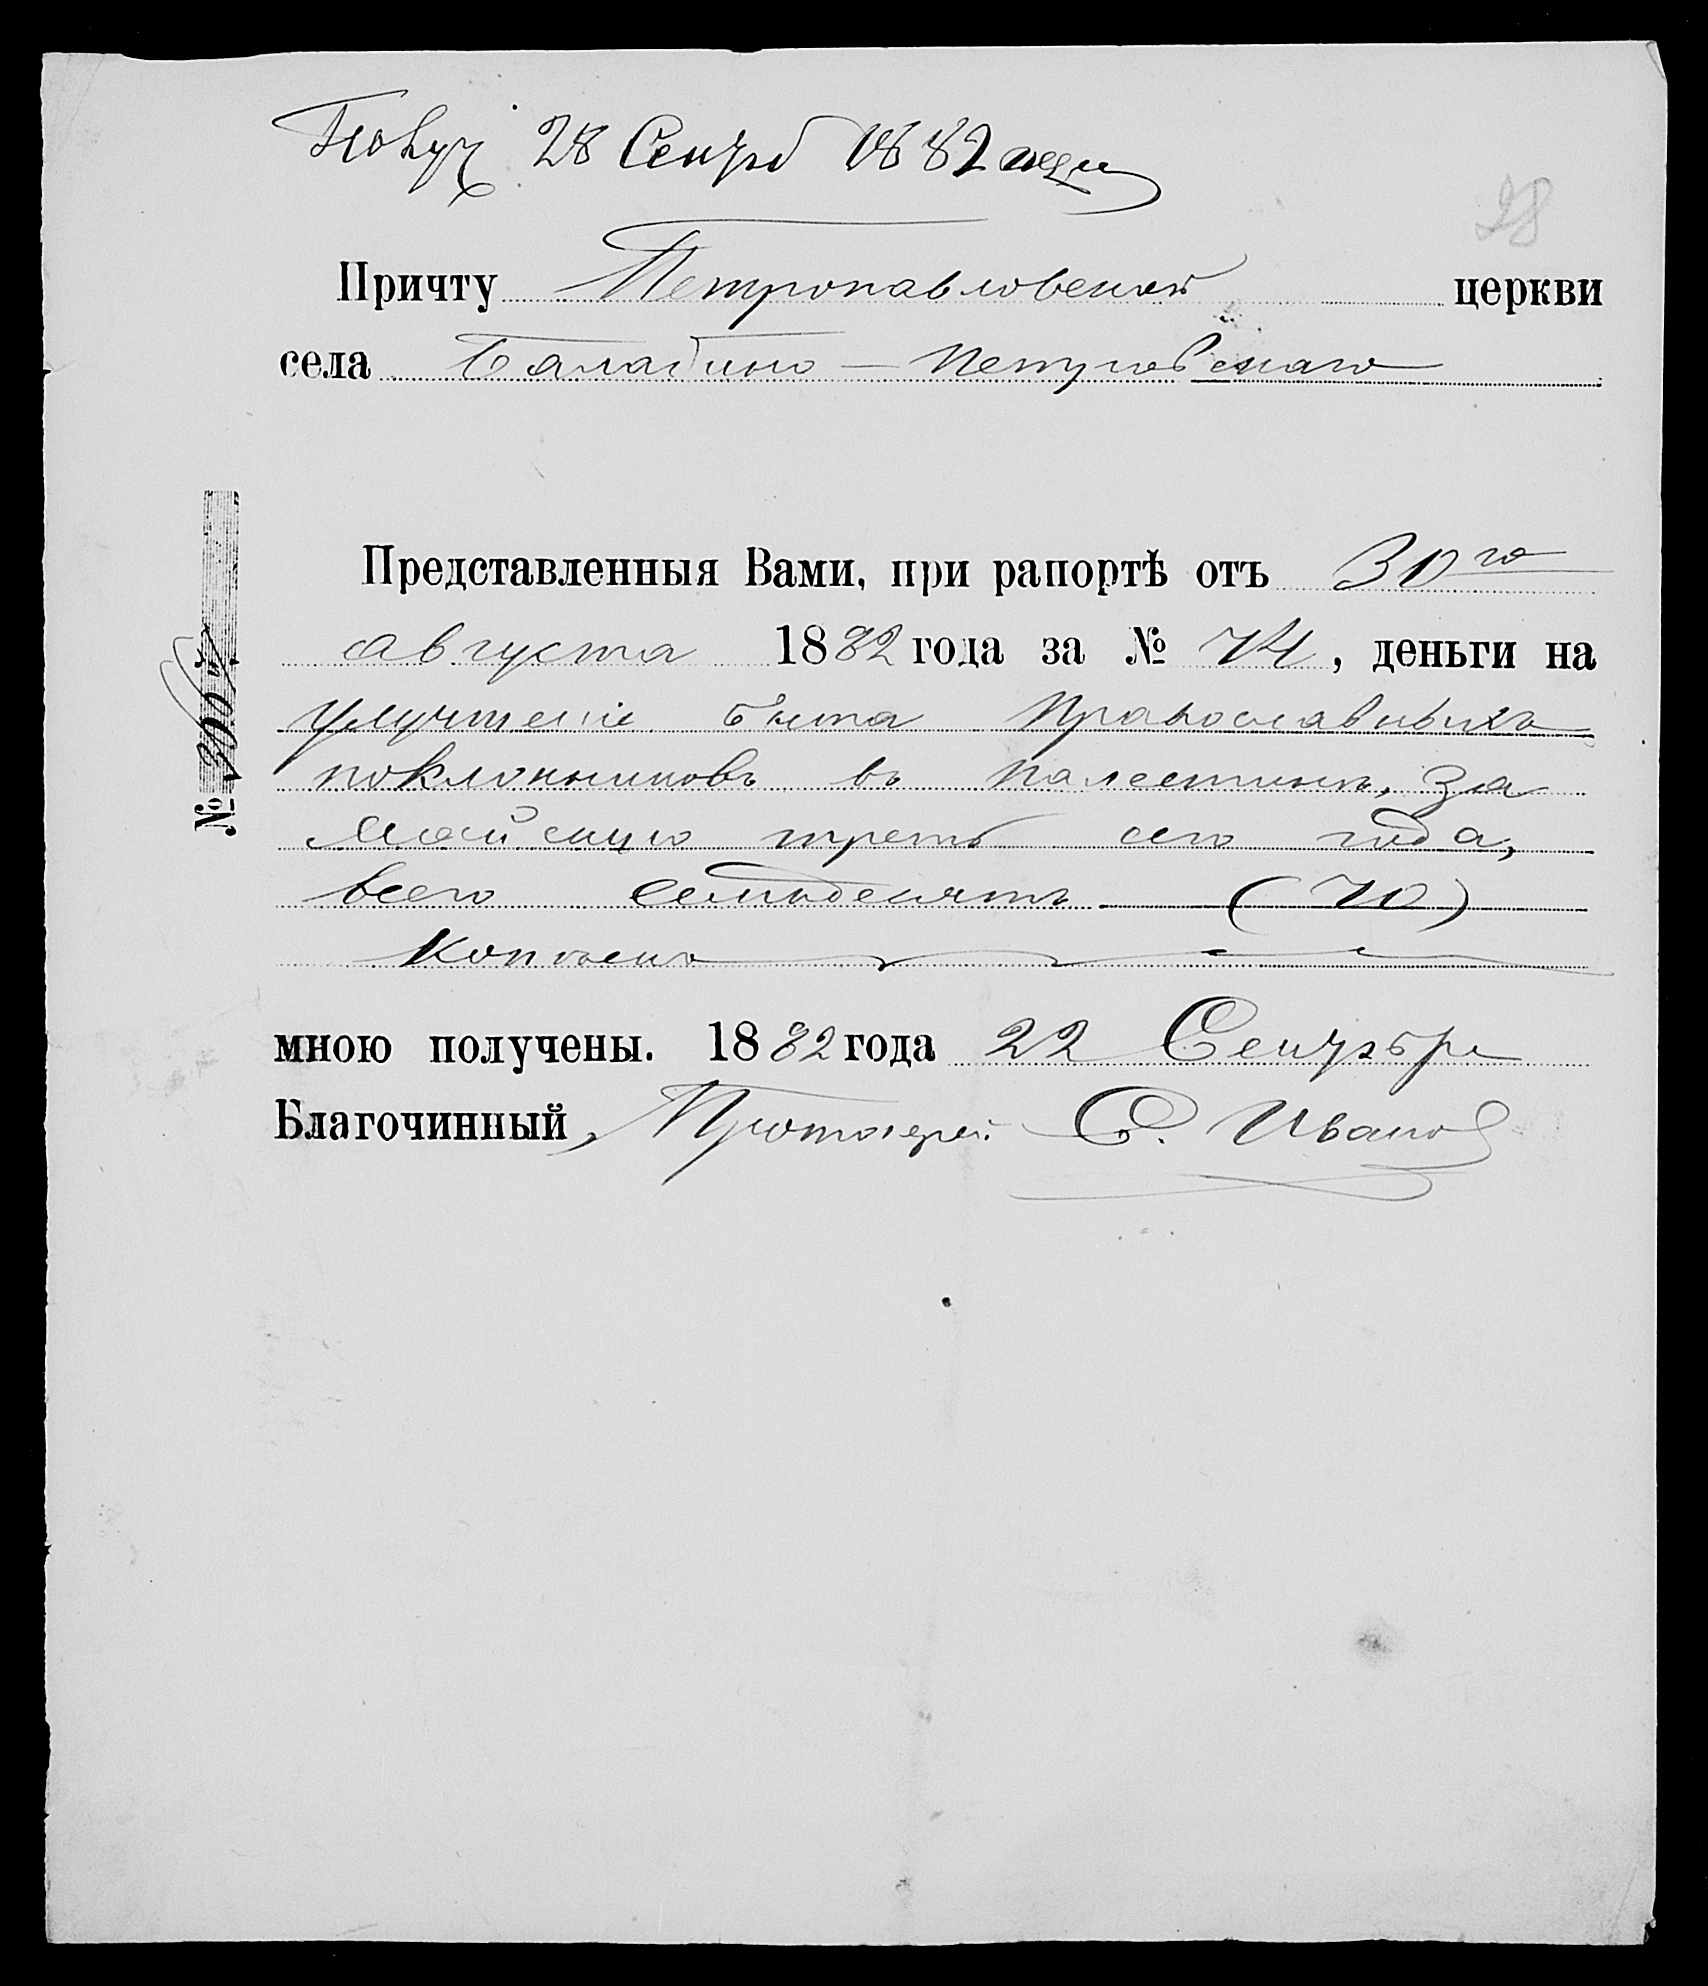 Получ. 28 Сентяб 1882 года
28
Причту Петропавловской церкви
села Балабино-Петровскаго
Представленныя Вами, при рапортѣ отъ 30го
августа 1882 года за № 74, деньги на
улучшеніе быта Православныхъ
поклонниковъ въ Палестинѣ, за
Майскую треть сего года,
всего семьдесятъ (70)
копѣекъ
мною получены. 1882 года 22 Сентября
Благочинный, Протоіерей С. Иванов
№ 300